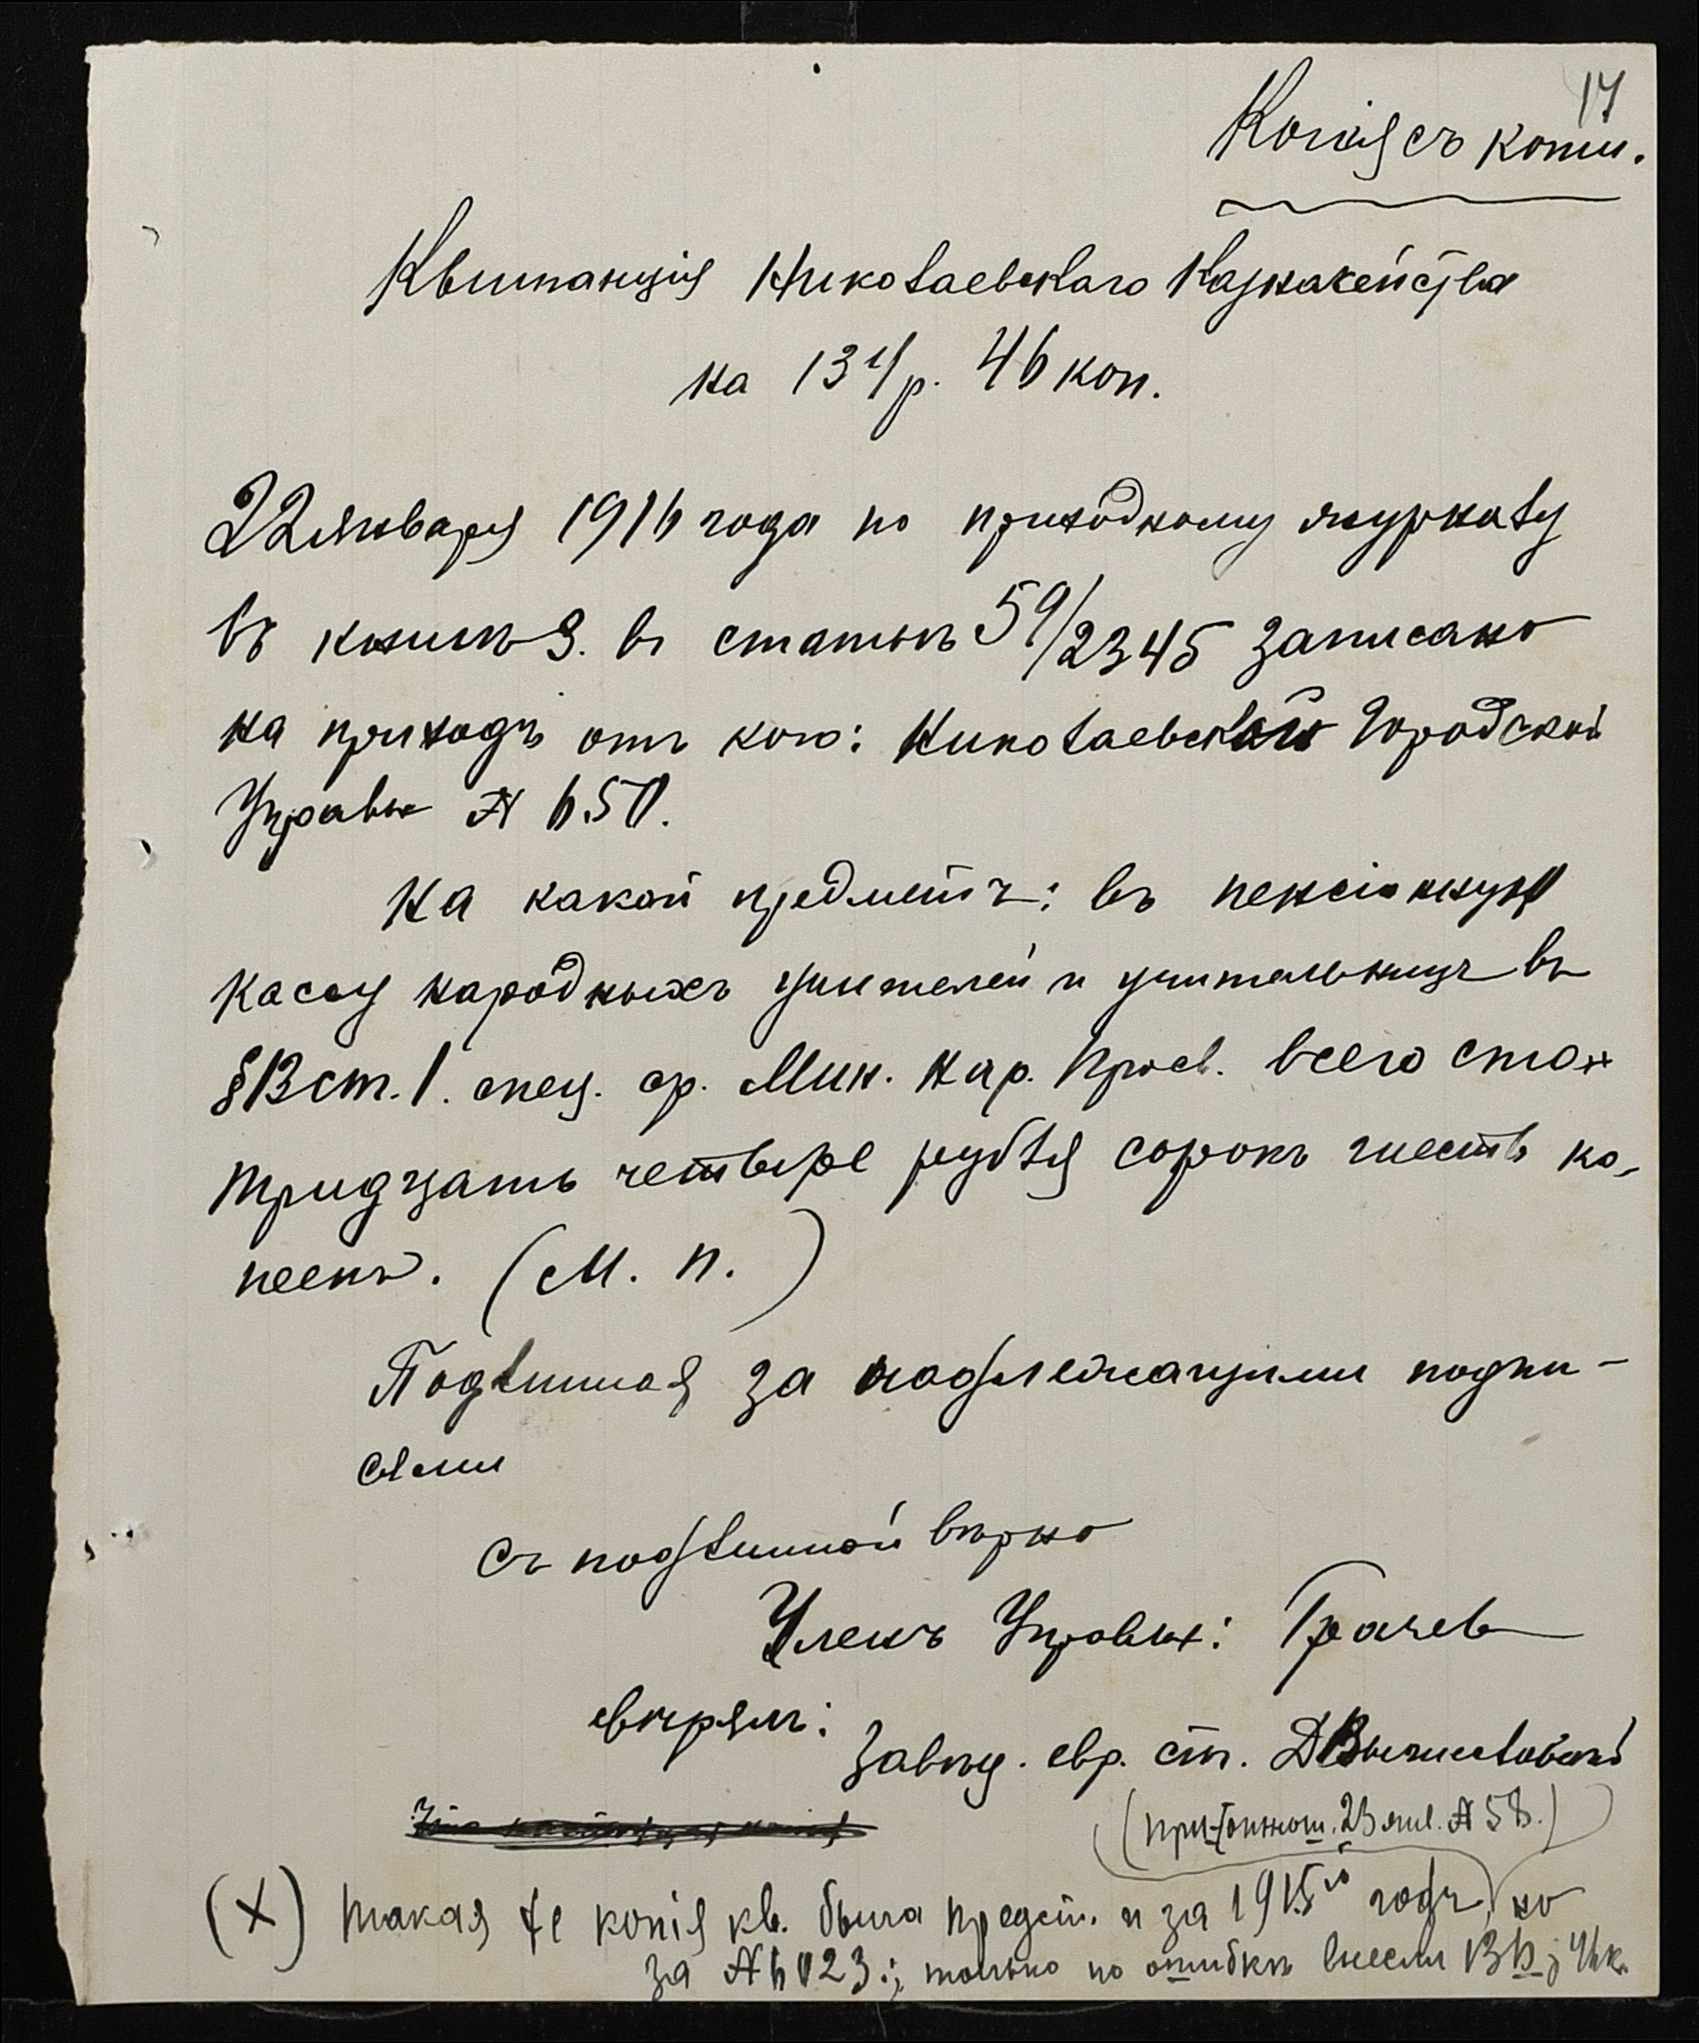 17
Копія съ копіи.
Квитанція Николаевскаго Казначейства
на 134 р. 46 коп.
22 января 1916 года по приходному журналу
въ книгѣ 3. въ статьѣ 59/2345 записано
на приходъ отъ кого: Николаевской Городской
Управы № 650.
На какой предметъ: въ пенсіонную
кассу народныхъ учителей и учительницъ въ
§ 13 ст. 1. спец. ср. Мин. Нар. Просв. всего сто
тридцать четыре рубля сорокъ шесть ко-
пеекъ. (М. П.)
Подлинная за надлежащими подпи-
сями
Съ подлинной вѣрно
Членъ Управы: Грачев
свѣрялъ:
Завѣд. евр. ст. Д
(при отнош. 23 янв. № 58.)
(X) Такая же копія кв. была предст. и за 1915го годъ, но
за № 6023.; только по ошибкѣ внесли 13 р. 46 к.